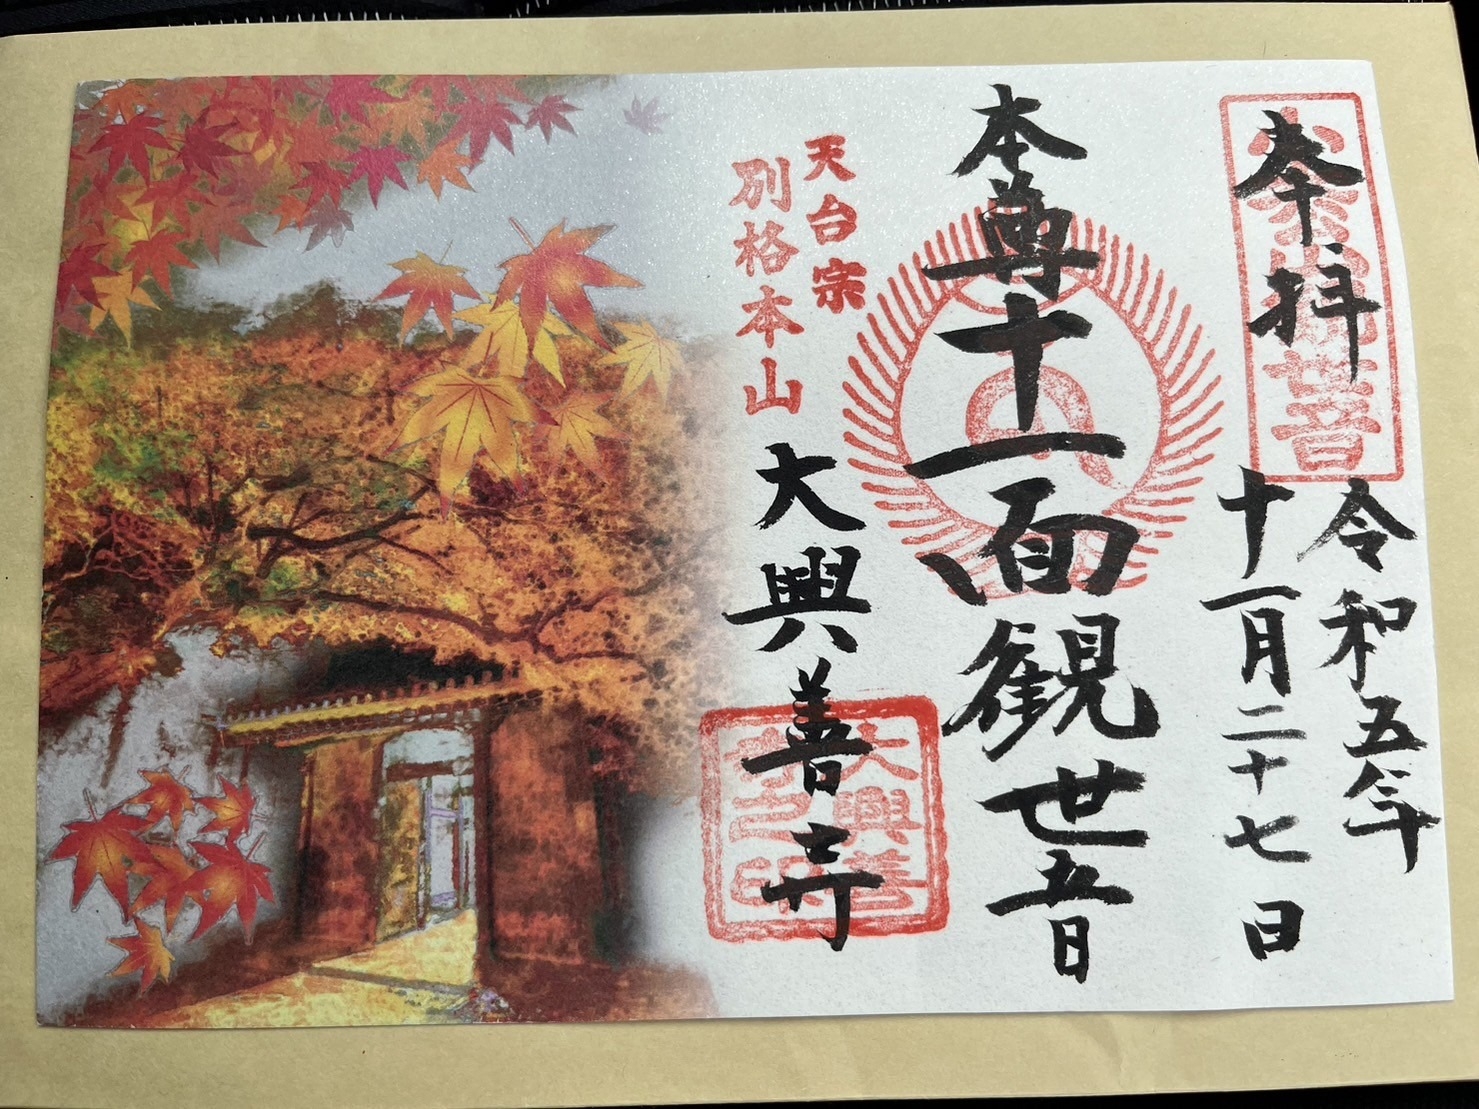 奉拝
令和五年
十一月二十七日
本尊十一面観世音
天台宗
別格本山
大興善寺